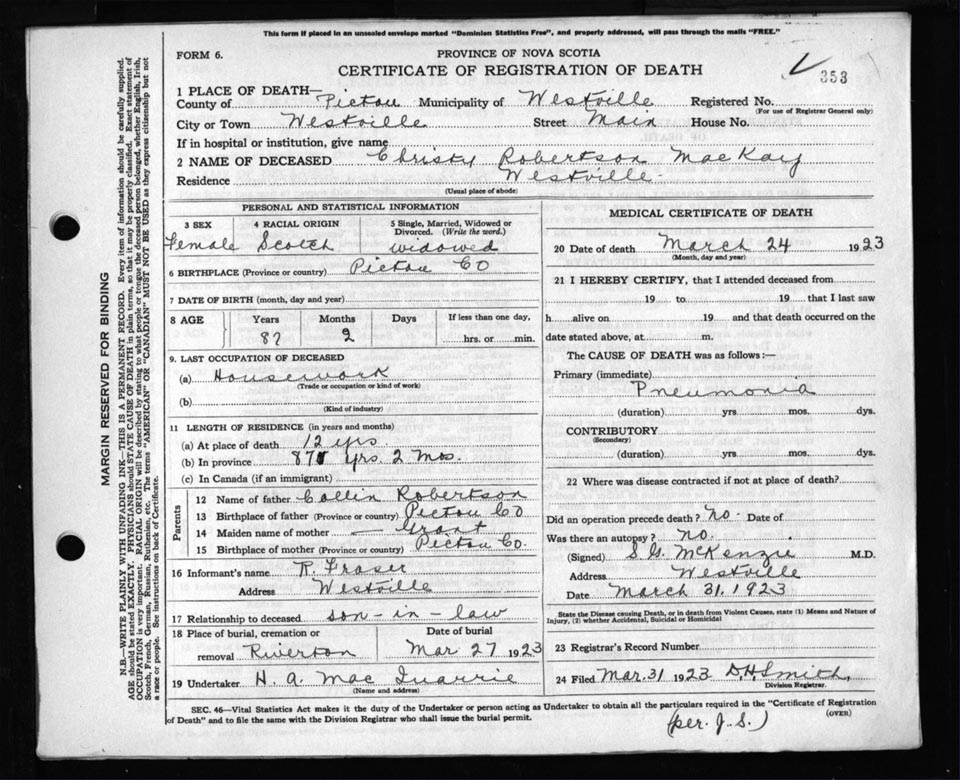 This form if placed in an unsealed envelope marked "Dominion Statistics Free", and properly addressed, will pass through the mails "FREE."
FORM 6.
PROVINCE OF NOVA SCOTIA
CERTIFICATE OF REGISTRATION OF DEATH
353
1 PLACE OF DEATH—
County of Pictou Municipality of Westville Registered No.
(For use of Registrar General only)
City or Town Westville Street Main House No.
If in hospital or institution, give name
2 NAME OF DECEASED Christy Robertson MacKay
Residence Westville
(Usual place of abode)
PERSONAL AND STATISTICAL INFORMATION
3 SEX 4 RACIAL ORIGIN 5 Single, Married, Widowed or Divorced. (Write the word.)
Female Scotch widowed
6 BIRTHPLACE (Province or country) Pictou Co
7 DATE OF BIRTH (month, day and year)
8 AGE Years Months Days If less than one day,
87 2 hrs. or min.
9. LAST OCCUPATION OF DECEASED
(a) Housework
(Trade or occupation or kind of work)
(b)
(Kind of industry)
11 LENGTH OF RESIDENCE (in years and months)
(a) At place of death 12 yrs
(b) In province 87 yrs. 2 Mos.
(c) In Canada (if an immigrant)
Parents
12 Name of father Collin Robertson
13 Birthplace of father (Province or country) Pictou Co
14 Maiden name of mother — Grant
15 Birthplace of mother (Province or country) Pictou Co.
16 Informant's name R. Fraser
Address Westville
17 Relationship to deceased son-in-law
18 Place of burial, cremation or Date of burial
removal Riverton Mar 27 1923
19 Undertaker H. A. Mac Quarrie
(Name and address)
MEDICAL CERTIFICATE OF DEATH
20 Date of death March 24 1923
(Month, day and year)
21 I HEREBY CERTIFY, that I attended deceased from
19 to 19 that I last saw
h alive on 19 and that death occurred on the
date stated above, at m.
The CAUSE OF DEATH was as follows:—
Primary (immediate)
Pneumonia
(duration) yrs. mos. dys.
CONTRIBUTORY
(Secondary)
(duration) yrs. mos. dys.
22 Where was disease contracted if not at place of death?
Did an operation precede death? no. Date of
Was there an autopsy? no.
(Signed) S. G. McKenzie M.D.
Address Westville
Date March 31. 1923
State the Disease causing Death, or in death from Violent Causes, state (1) Means and Nature of
Injury, (2) whether Accidental, Suicidal or Homicidal
23 Registrar's Record Number
24 Filed Mar. 31 1923 D.H. Smith,
Division Registrar.
SEC. 46—Vital Statistics Act makes it the duty of the Undertaker or person acting as Undertaker to obtain all the particulars required in the "Certificate of Registration
of Death" and to file the same with the Division Registrar who shall issue the burial permit.
(OVER)
(per. J. S.)
MARGIN RESERVED FOR BINDING
N.B.—WRITE PLAINLY WITH UNFADING INK—THIS IS A PERMANENT RECORD. Every item of information should be carefully supplied.
AGE should be stated EXACTLY. PHYSICIANS should STATE CAUSE OF DEATH in plain terms, so that it may be properly classified. Exact statement of
OCCUPATION is very important. RACIAL ORIGIN will be described by stating to what people or tongue the deceased person belonged, whether English, Irish,
Scotch, French, German, Russian, Ruthenian, etc. The terms "AMERICAN" OR "CANADIAN" MUST NOT BE USED as they express citizenship but not
a race or people. See instructions on back of Certificate.